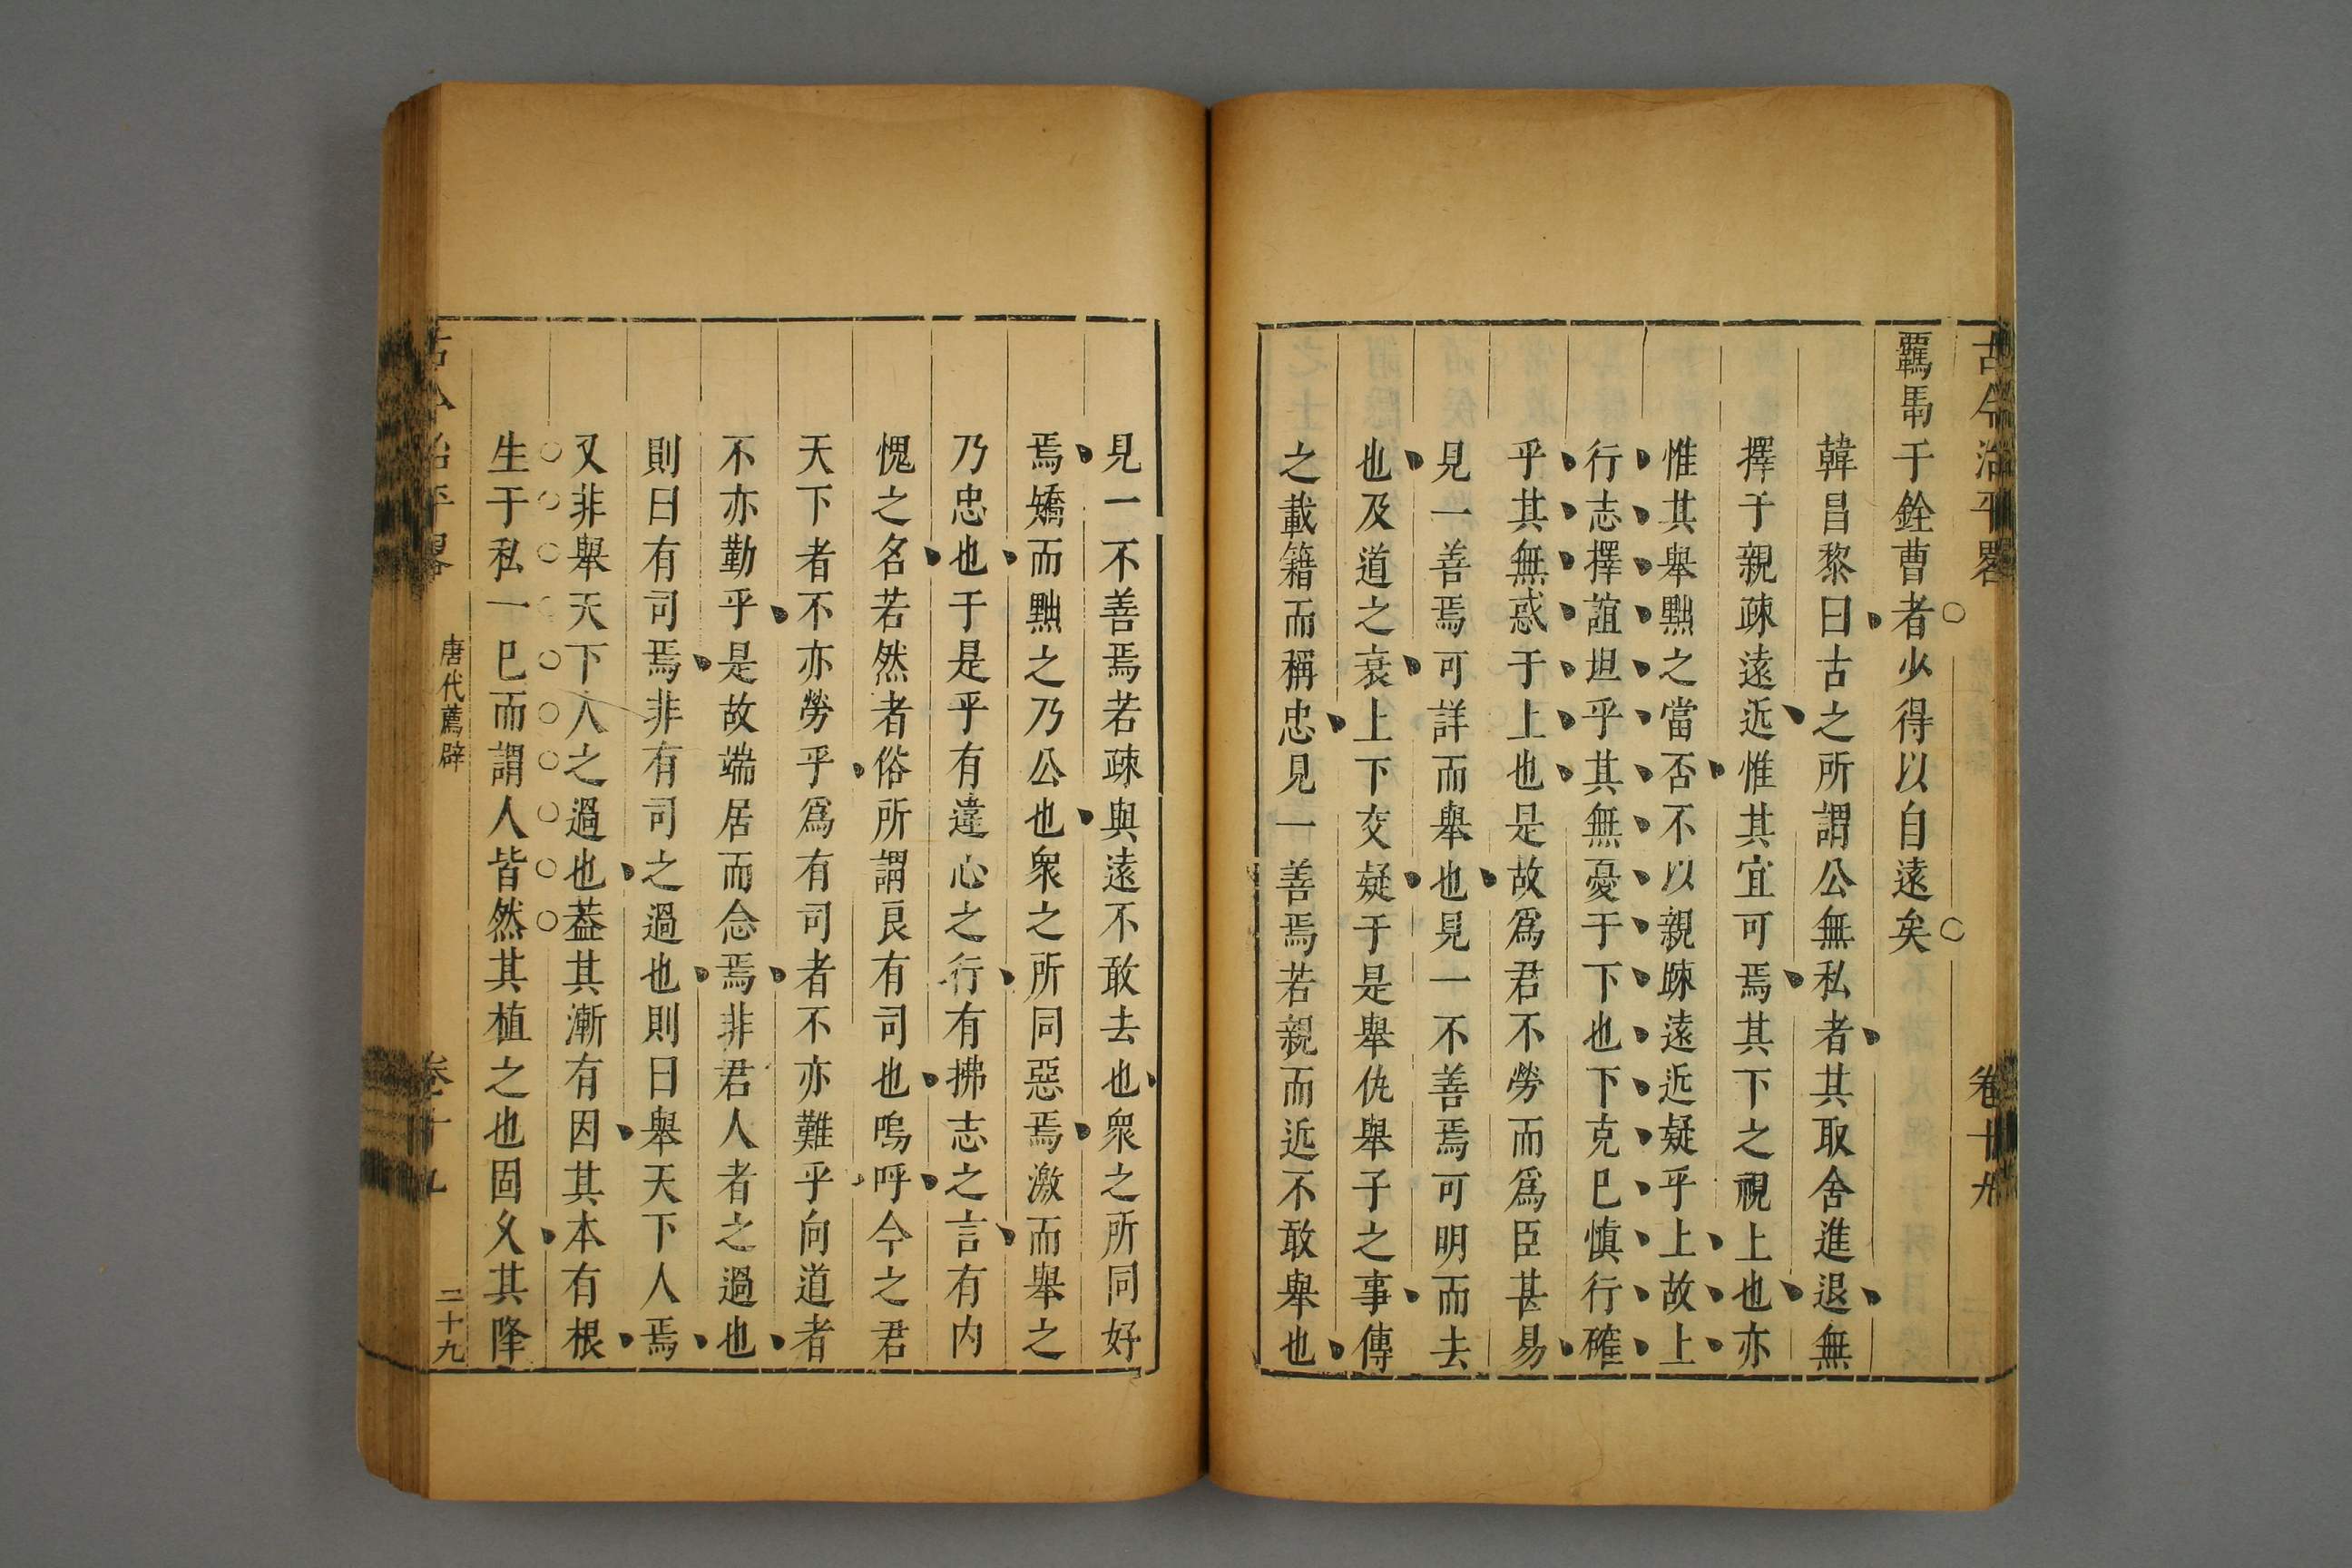 古今治平畧 卷十九
羈馽于銓曹者少得以自遠矣
韓昌黎曰古之所謂公無私者其取舍進退無
擇于親疎遠近惟其宜可焉其下之視上也亦
惟其舉黜之當否不以親疎遠近疑乎上故上
行志擇誼坦乎其無憂于下也下克巳慎行確
乎其無惑于上也是故爲君不勞而爲臣甚易
見一善焉可詳而舉也見一不善焉可明而去
也及道之衰上下交疑于是舉仇舉子之事傳
之載籍而稱忠見一善焉若親而近不敢舉也
見一不善焉若疎與遠不敢去也衆之所同好
焉矯而黜之乃公也衆之所同惡焉激而舉之
乃忠也于是乎有違心之行有拂志之言有内
愧之名若然者俗所謂良有司也嗚呼今之君
天下者不亦勞乎爲有司者不亦難乎向道者
不亦勤乎是故端居而念焉非君人者之過也
則曰有司焉非有司之過也則曰舉天下人焉
又非舉天下人之過也葢其漸有因其本有根
生于私一巳而謂人皆然其植之也固久其降
古今治平畧 唐代薦辟 卷十九 二十九